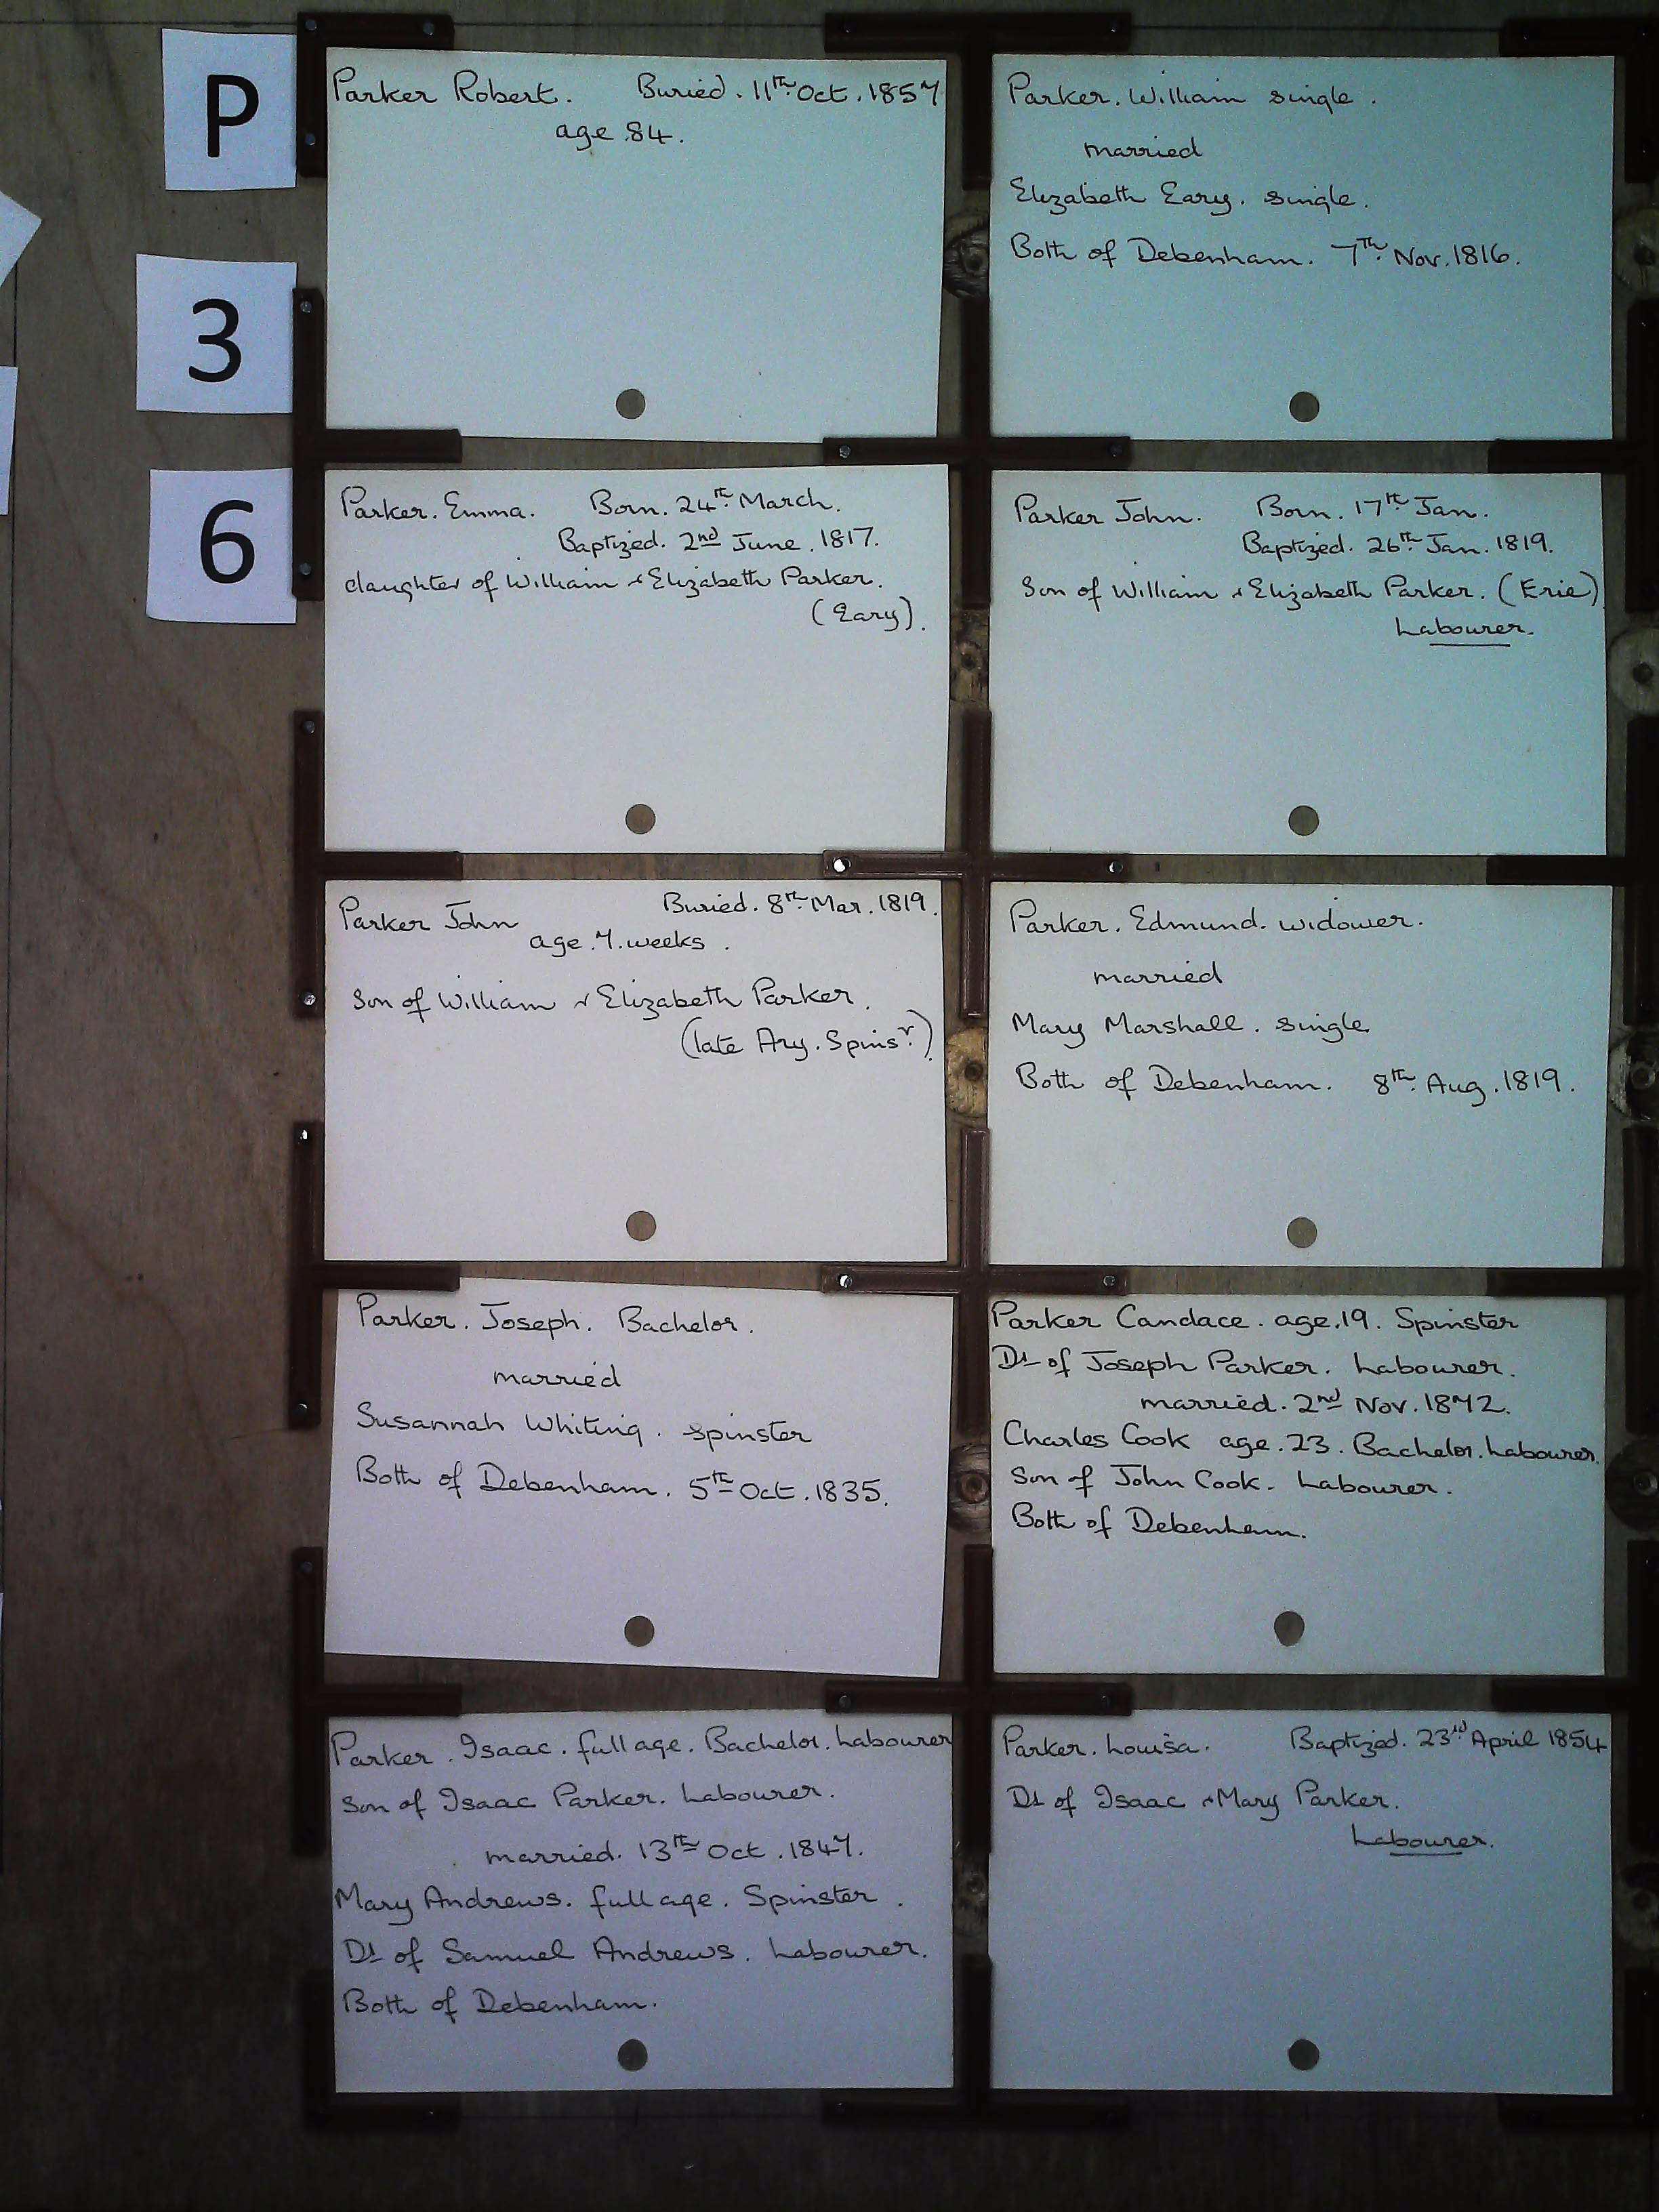 P
3
6
Parker Robert. Buried. 11th. Oct. 1857
age 84.
Parker. William single.
married
Elizabeth Eary. single.
Both of Debenham. 7Th. Nov. 1816.
Parker. Emma. Born. 24th. March.
Baptized. 2nd June. 1817.
daughter of William & Elizabeth Parker.
(Eary).
Parker John. Born. 17th. Jan.
Baptized. 26th. Jan. 1819.
Son of William & Elizabeth Parker. (Erie)
Labourer.
Parker John Buried. 8th. Mar. 1819.
age. 7. weeks.
Son of William & Elizabeth Parker.
(late Ary. Spinsr.).
Parker. Edmund. widower.
married
Mary Marshall. single
Both of Debenham. 8th. Aug. 1819.
Parker. Joseph. Bachelor.
married
Susannah Whiting. spinster
Both of Debenham. 5th Oct. 1835.
Parker Candace. age. 19. Spinster
Dt of Joseph Parker. Labourer.
married. 2nd Nov. 1872.
Charles Cook age. 23. Bachelor. Labourer.
Son of John Cook. Labourer.
Both of Debenham.
Parker. Isaac. full age. Bachelor. Labourer
Son of Isaac Parker. Labourer.
married. 13th Oct. 1847.
Mary Andrews. full age. Spinster.
Dt of Samuel Andrews. Labourer.
Both of Debenham.
Parker. Louisa. Baptized. 23rd. April 1854
Dt of Isaac & Mary Parker.
Labourer.